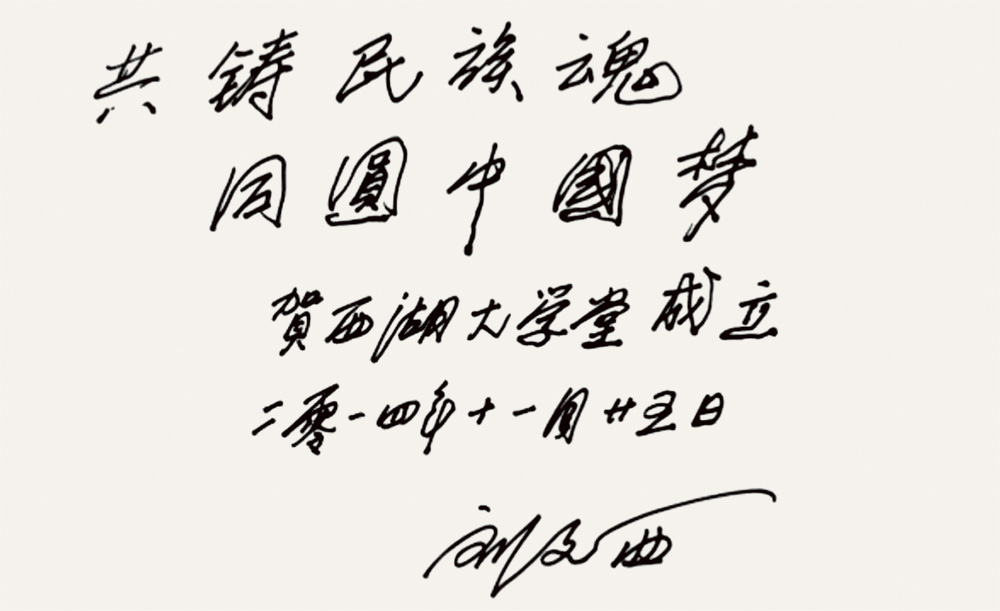 共铸民族魂
同圓中國梦
賀西湖大学堂成立
二零一四年十一月廿五日
刘文西